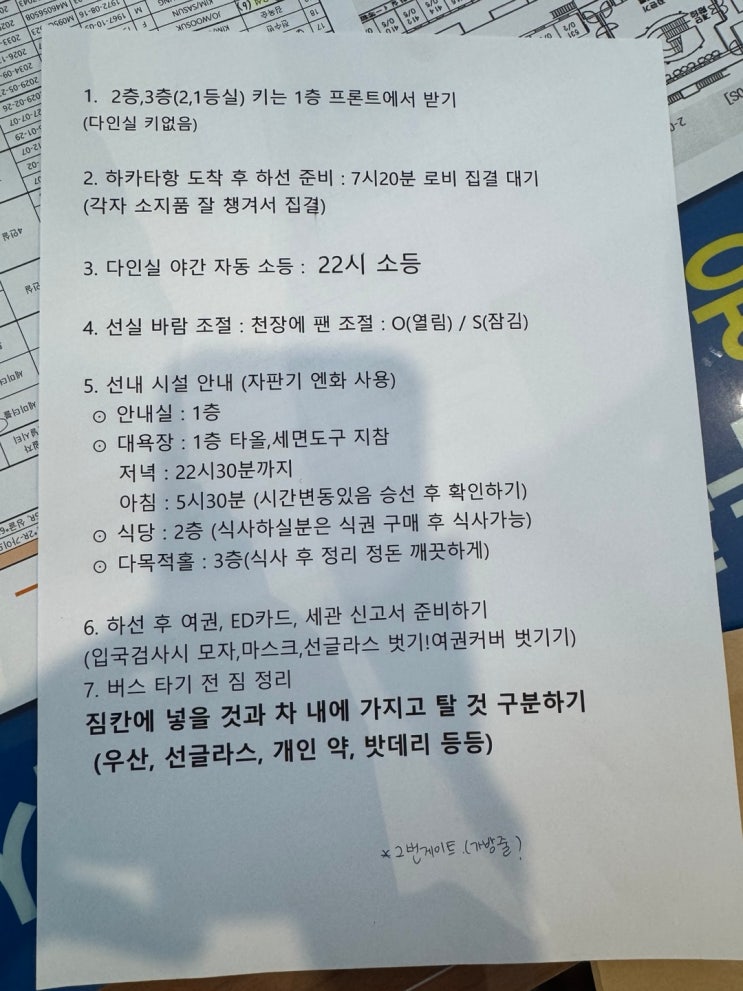 1. 2층,3층(2,1등실) 키는 1층 프론트에서 받기
(다인실 키없음)
2. 하카타항 도착 후 하선 준비 : 7시20분 로비 집결 대기
(각자 소지품 잘 챙겨서 집결)
3. 다인실 야간 자동 소등 : 22시 소등
4. 선실 바람 조절 : 천장에 팬 조절 : O(열림) / S(잠김)
5. 선내 시설 안내 (자판기 엔화 사용)
⊙ 안내실 : 1층
⊙ 대욕장 : 1층 타올,세면도구 지참
저녁 : 22시30분까지
아침 : 5시30분 (시간변동있음 승선 후 확인하기)
⊙ 식당 : 2층 (식사하실분은 식권 구매 후 식사가능)
⊙ 다목적홀 : 3층(식사 후 정리 정돈 깨끗하게)
6. 하선 후 여권, ED카드, 세관 신고서 준비하기
(입국검사시 모자,마스크,선글라스 벗기!여권커버 벗기기)
7. 버스 타기 전 짐 정리
짐칸에 넣을 것과 차 내에 가지고 탈 것 구분하기
(우산, 선글라스, 개인 약, 밧데리 등등)
*2번게이트.(가방줄)